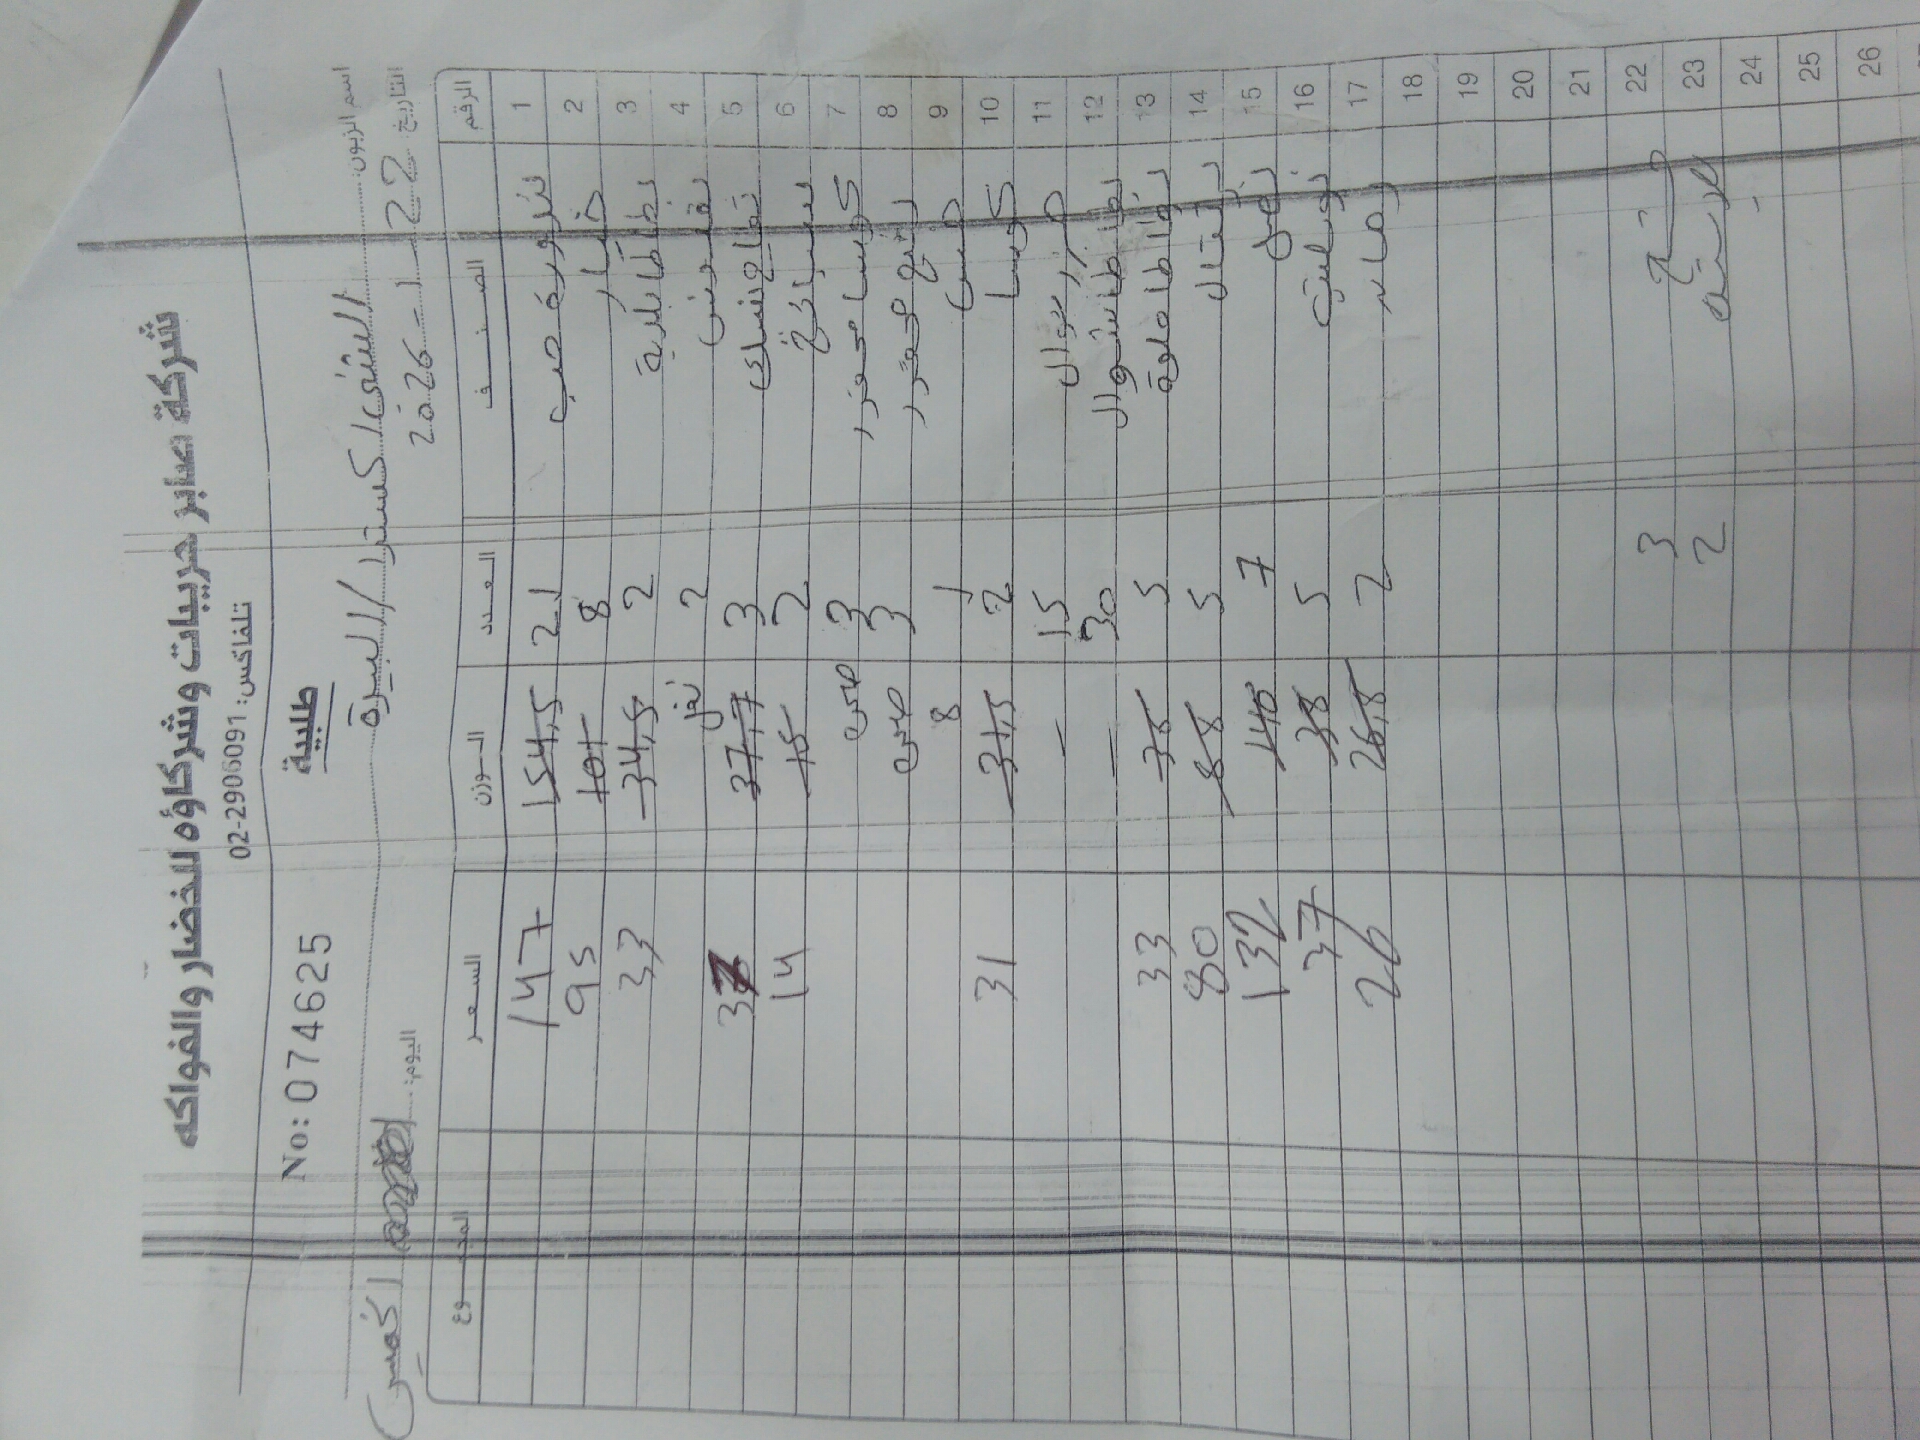 شركة صابر حريبات وشركاؤه للخضار والفواكه
تلفاكس: 02-2906091
طلبية
No: 074625
اسم الزبون: اكسترا / البيرة
التاريخ 22-1-2026 اليوم: الخميس
الرقم الصنف العدد الوزن السعر المجموع
1 بندورة حب 21 154,5 147
2 خيار 8 101 95
3 2 34,5 33
4 بقدونس 2
5 تفاح 3 37,7 37
6 سبانخ 2 15 14
7 كوسا محفور 3
8 محفور 3
9 1 8
10 كوسا 2 31,5 31
11 جزر شوال 15 -
12 بطاطا شوال 30 -
13 بطاطا 5 35 33
14 برتقال 5 88 80
15 بصل 7 140 132
16 5 38 37
17 2 26,5 26
18
19
20
21
22 3
23 2
24
25
26